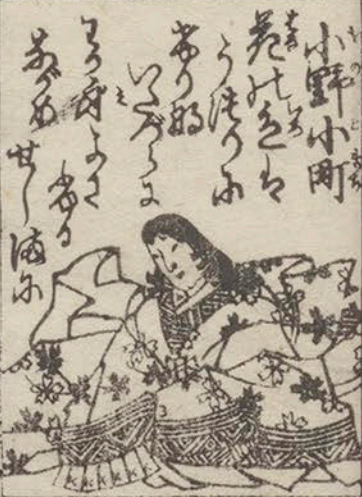 小野小町
花の色は
うつりに
けりな
いたづらに
わが身よに
ふる
ながめ
せしまに